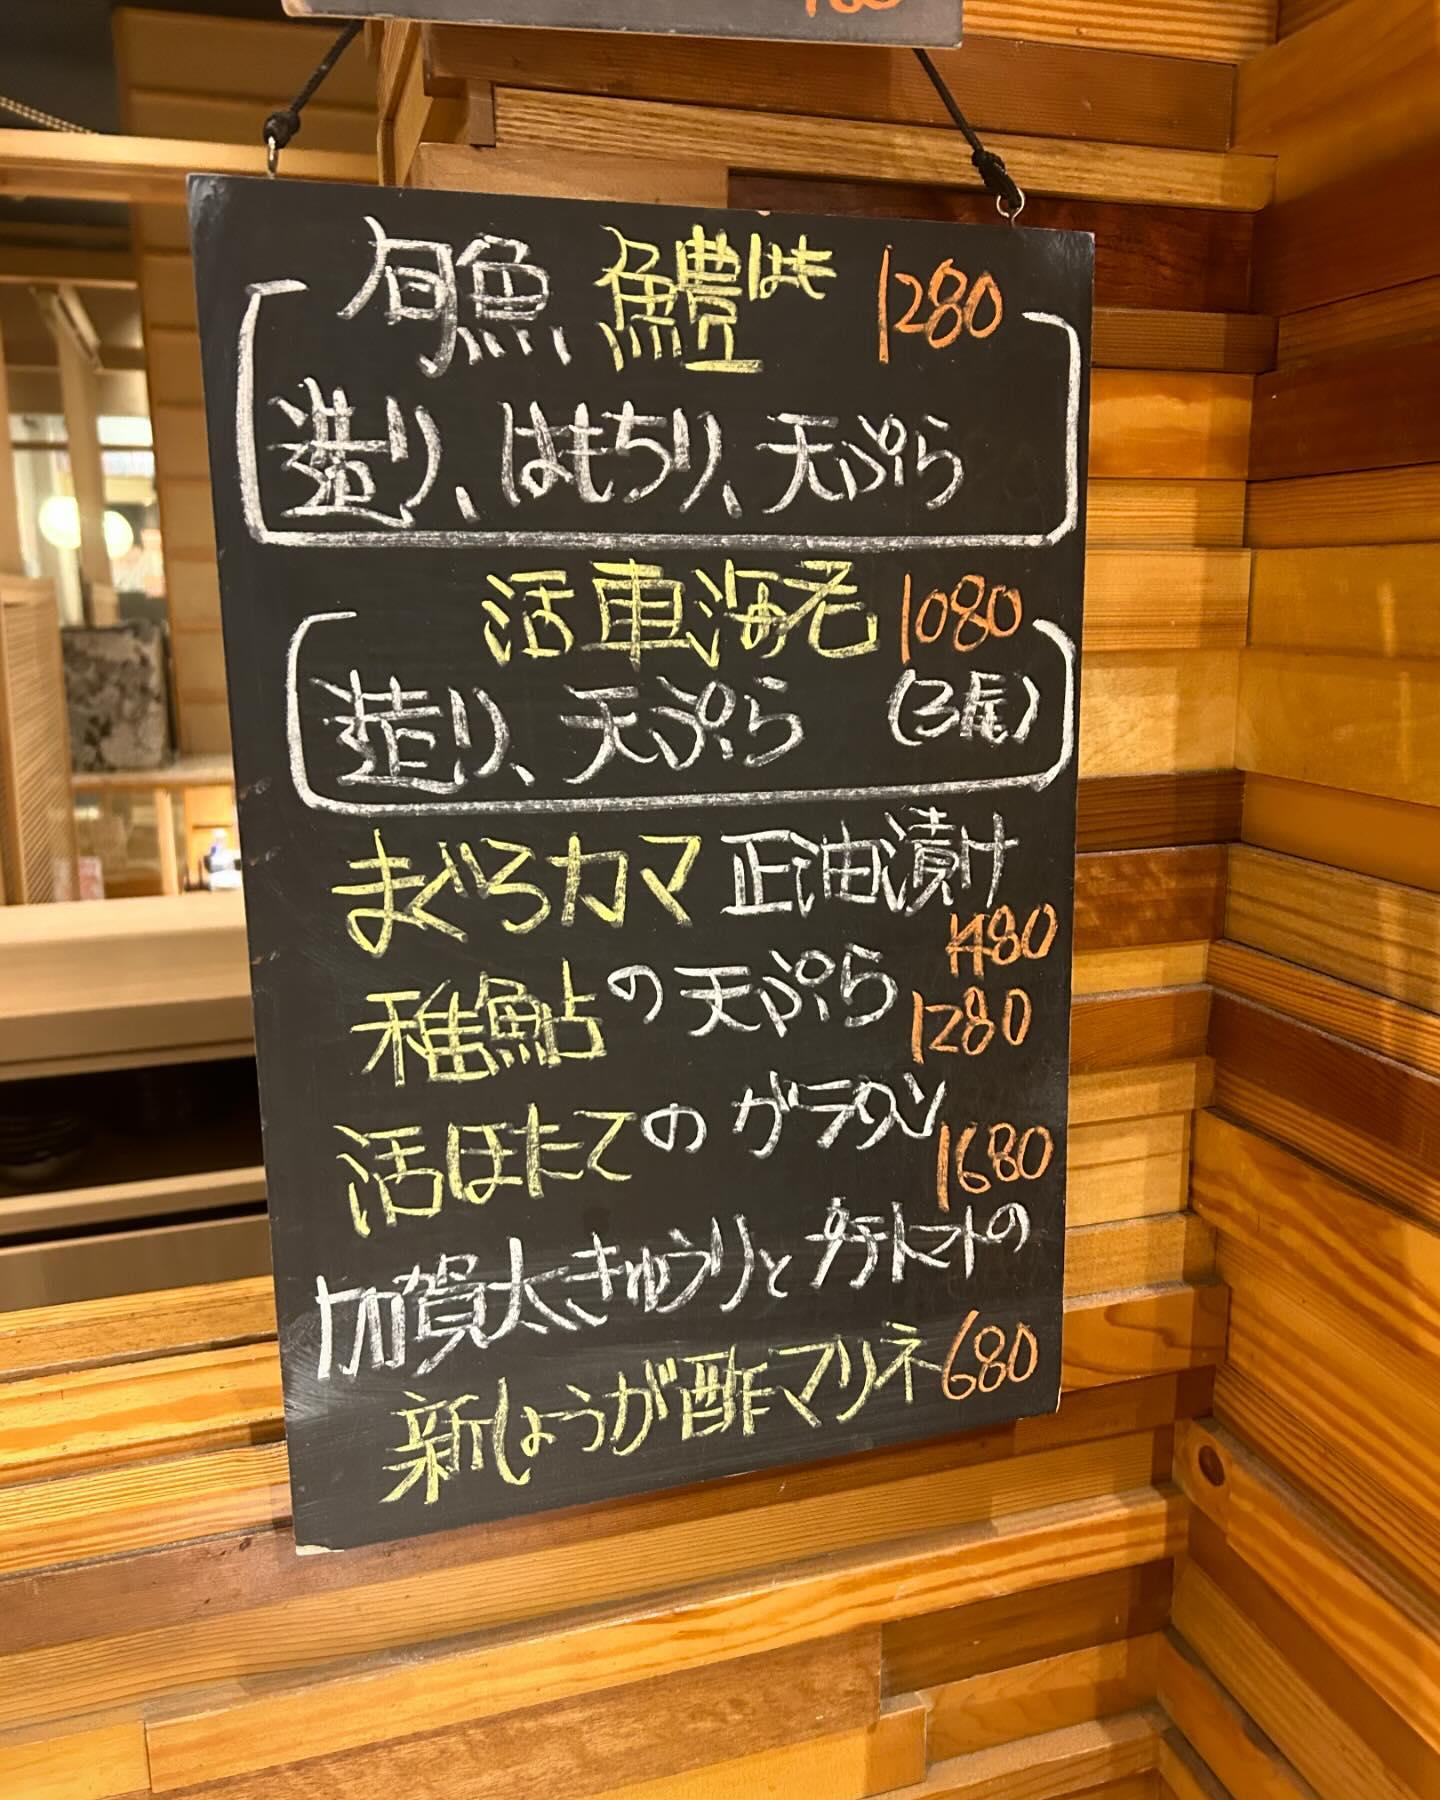 旬魚 鱧はも 1280
造り、はもちり、天ぷら
活車海老 1080
造り、天ぷら (3尾)
まぐろカマ 正油漬け
1480
稚鮎の天ぷら 1280
活ほたてのグラタン 1680
加賀太きゅうりとプチトマトの
新しょうが酢マリネ 680